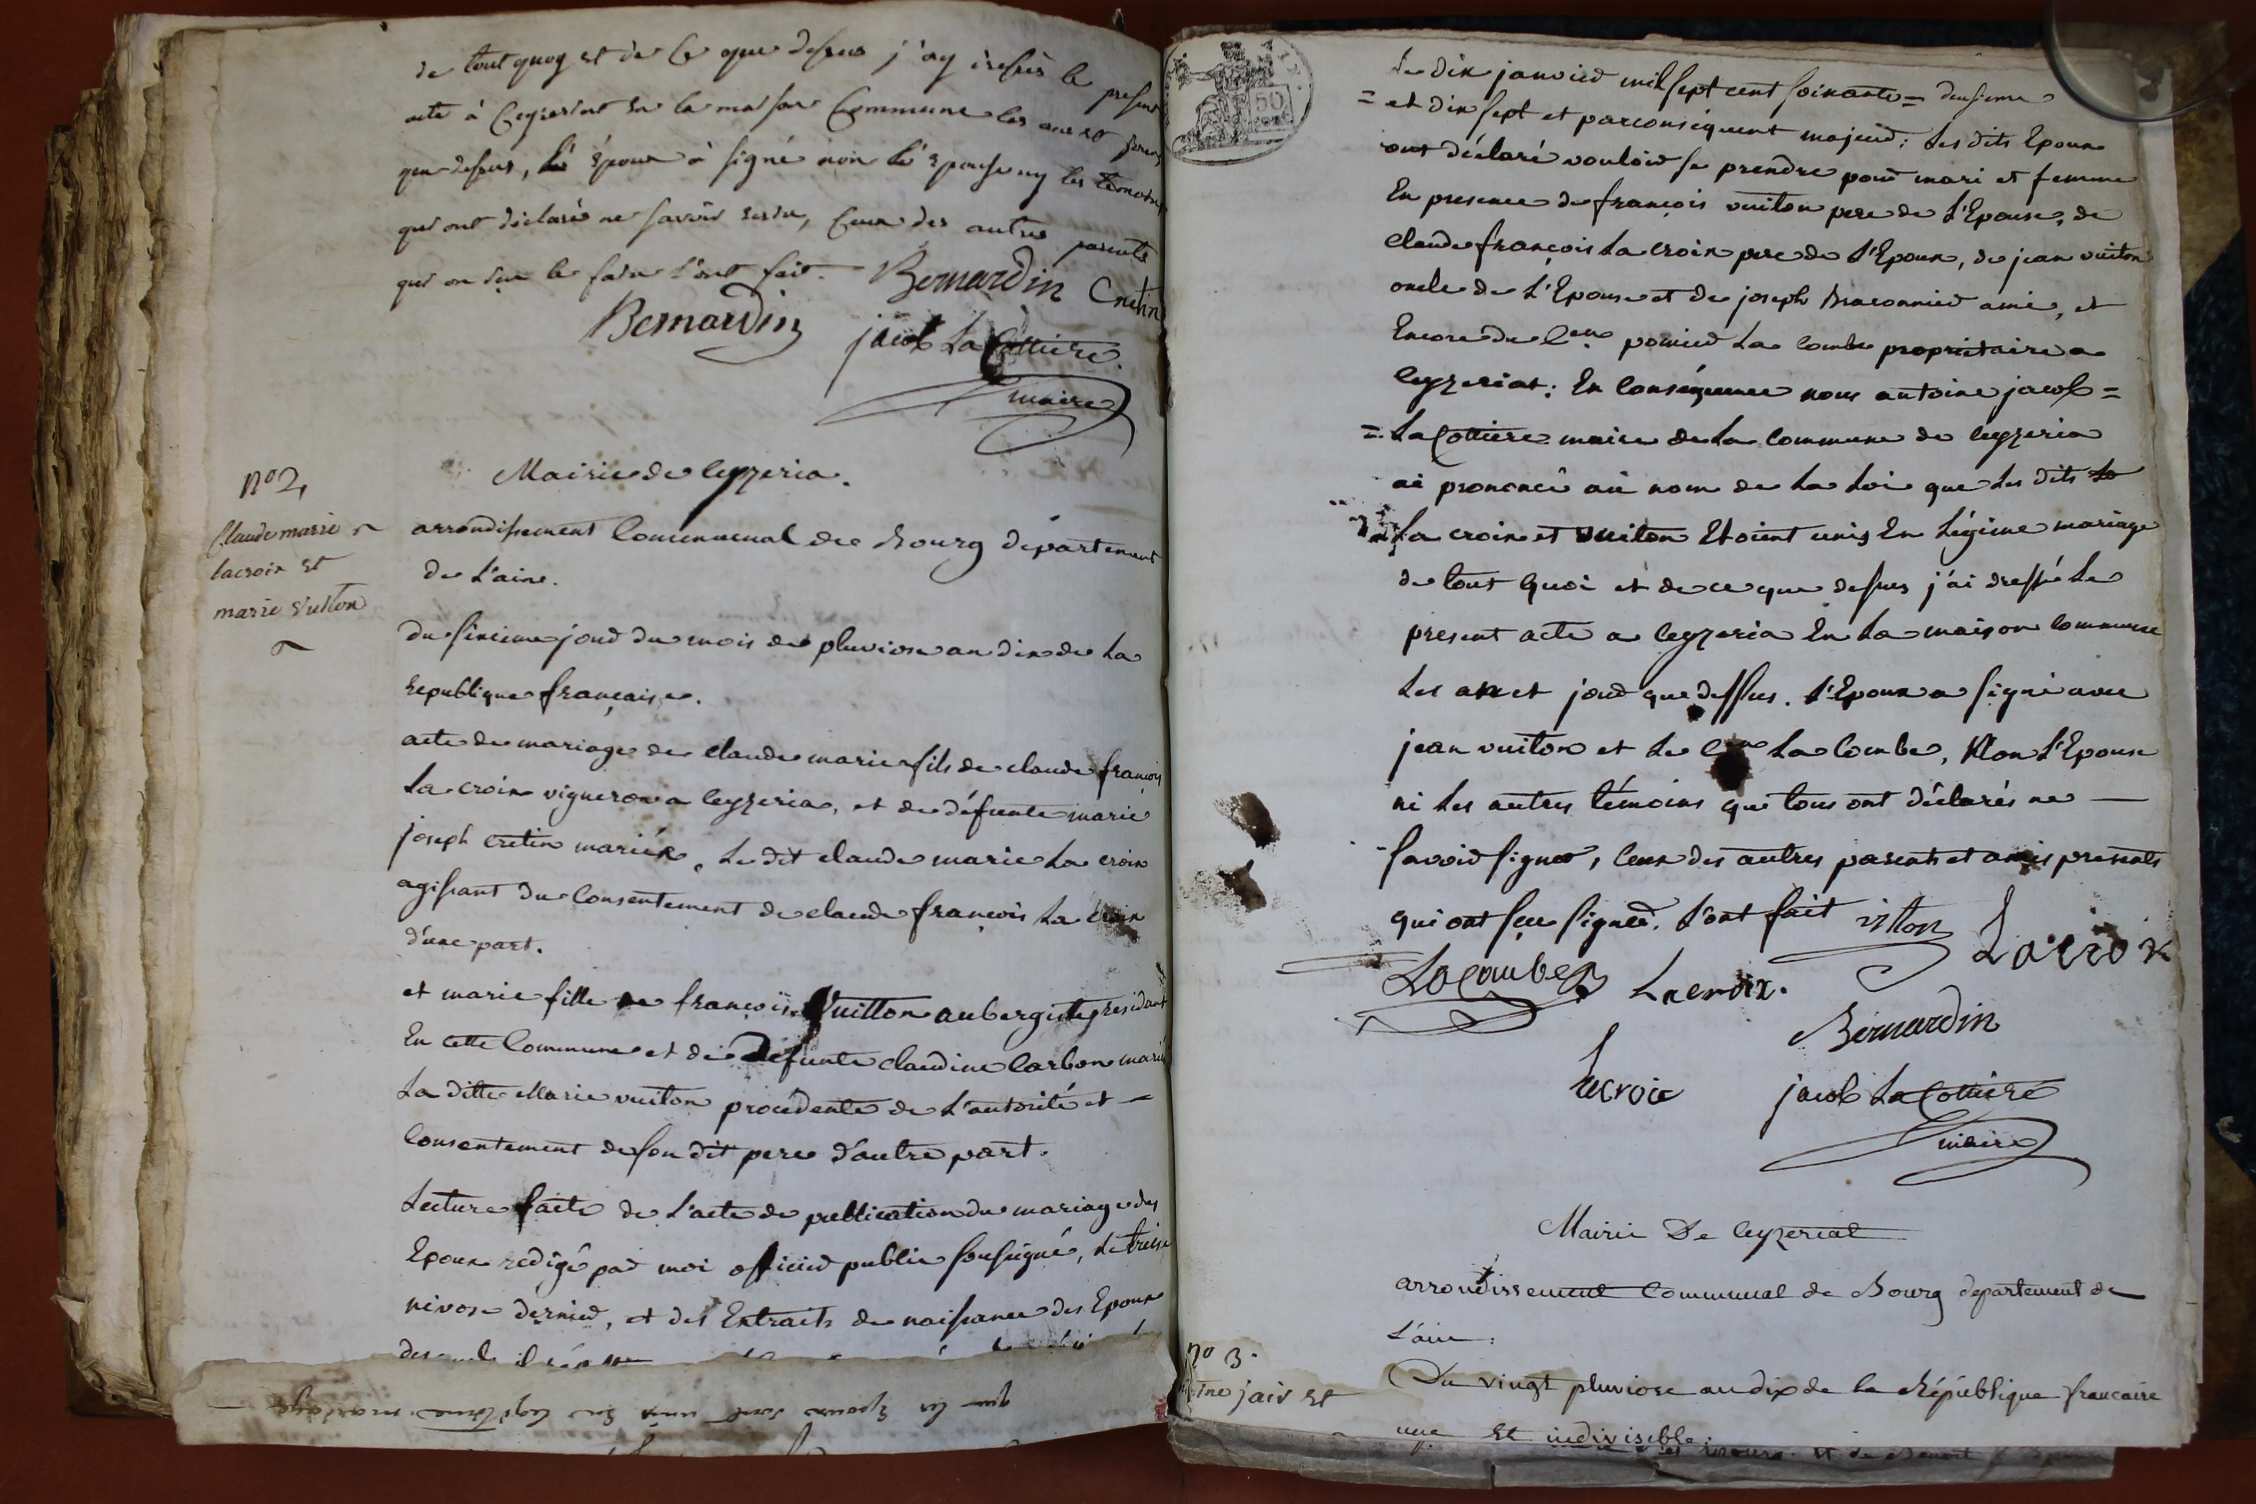 de tout quoy et de Ce que dessus j'ay dressés le present
acte à Ceyzeriat en la maison Commune les an et jours
que dessus, lé époux à signé non lé épouse ny les temoins
qui ont déclaré ne savoir ecrire, Ceux des autres parents
qui on sçu le faire l'ont fait. Bernardin Cretin
Bernardin jacob LaCottiere
maire
Mairie de ceyzeria.
n° 2,
Claude marie
lacroix et
marie vuiton
arrondissement Communal de Bourg département
de L'aine.
du sixieme jour du mois de pluviose an dix de La
republique française.
acte de mariage de claude marie fils de claude françois
La croix vigneron a ceyzeria, et de défunte marie
joseph cretin mariés, Le dit claude marie La croix
agissant du Consentement de claude françois La croix
d'une part.
et marie fille de françois Vuitton aubergiste residant
En cette Commune et de Défunte claudine Carbon mariés
La ditte Marie vuiton procédente de L'autorité et
Consentement de son dit pere d'autre part.
Lecture faite de L'acte de publication du mariage des
Epoux redigé par moi officier public soussigné, le treise
nivose dernier, et des Extraits de naissance des Epoux
que les Epoux sont unis En legitime mariage
Le dix janvier mil sept cent soixante=
= et dix sept et parconséquent majeur; Les dits Epoux
ont déclaré vouloir se prendre pour mari et femme
En presence de françois vuiton pere de L'Epouse, de
Claude françois La croix pere de L'Epoux, de jean vuiton
oncle de L'Epouse et de joseph Braconnier ami, et
Encore du Cen La combe propriétaire a
Ceyzeriat: En Conséquence nous antoine jacob=
= LaCottiere maire de La Commune de ceyzeria
ai prononcé au nom de La Loi que Les dits
La croix et vuiton Etoient unis En Légime mariage
de tout Quoi et de ce que dessus j'ai dressé Le
present acte a ceyzeria En La maison Commune
Les an et jour que dessus. L'Epoux a signé avec
jean vuiton et Le Cen La Combe, Non L'Epouse
ni Les autres témoins que tous ont déclarés ne —
savoir signer, Ceux des autres parents et amis presents
qui ont sçu signer. L'ont fait vitton Lacroix
LaCombe Lacroix.
Bernardin
Lecroix jacob LaCottiere
maire
Mairie De Ceyzeriat
arrondissement Communal de Bourg departement de
L'ain:
n° 3.
jair et
Du vingt pluviose an dix de la République francaise
une et indivisible.